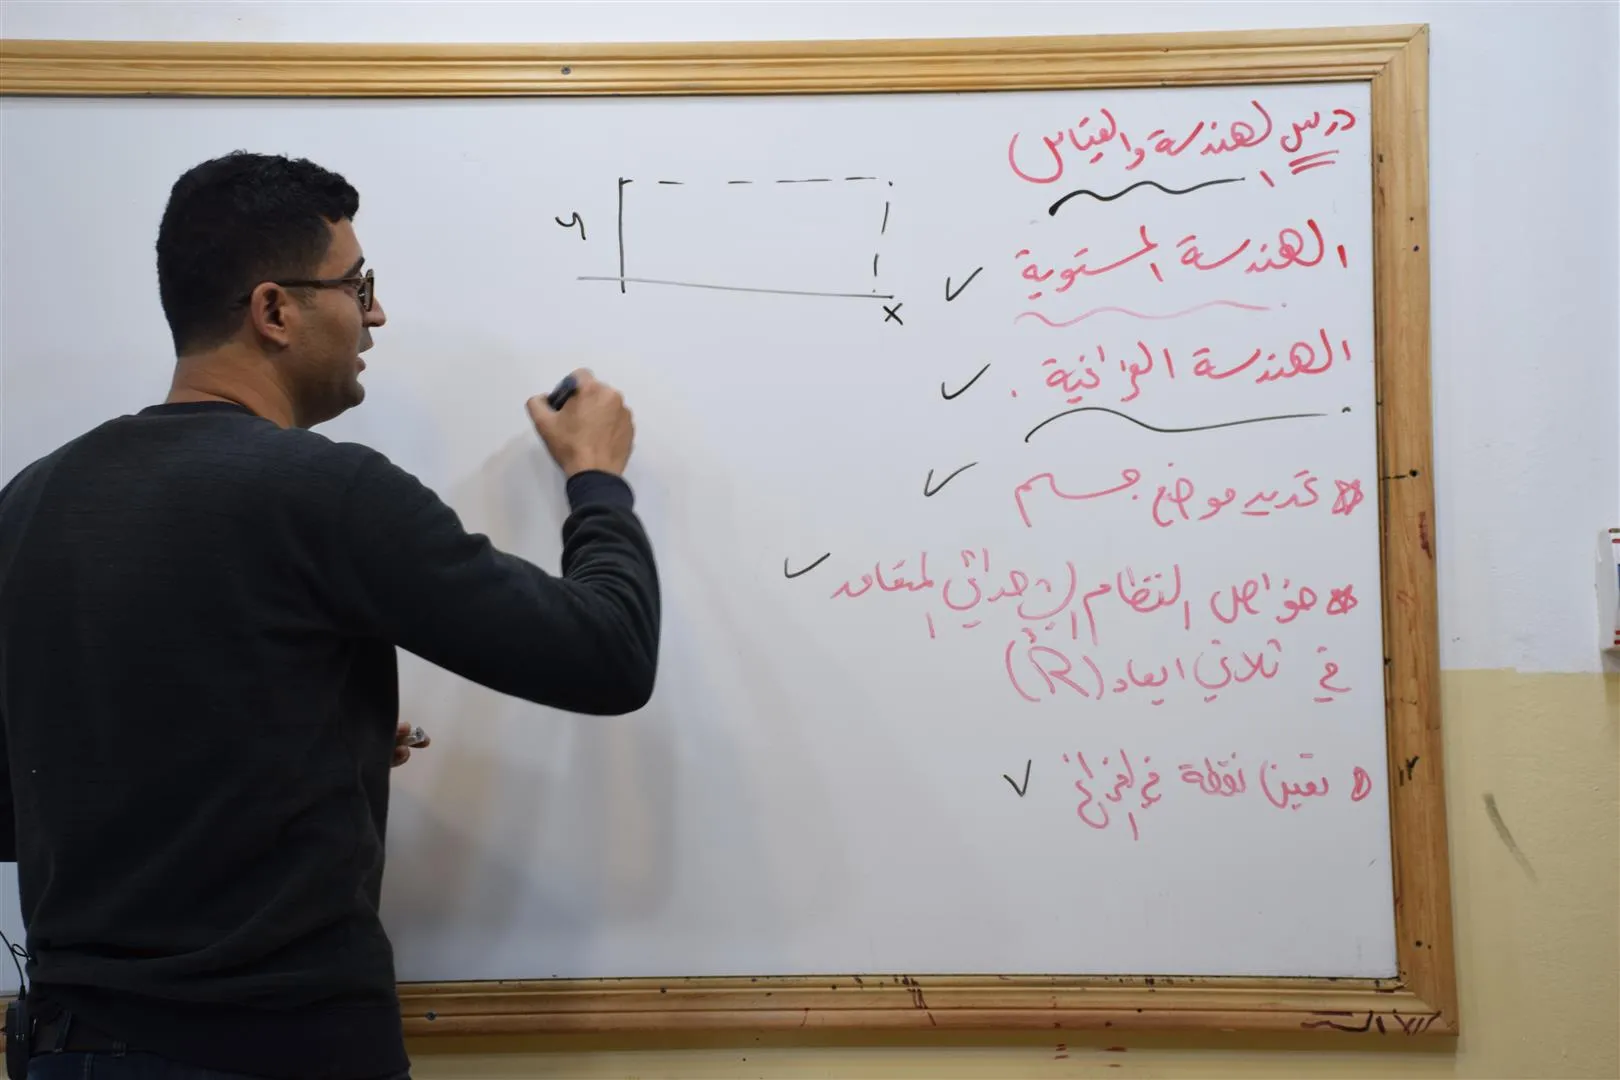 درس الهندسة والقياس
الهندسة المستوية
الهندسة الفراغية .
تحديد موضع جسم
خواص النظام الإحداثي المتعامد
في ثلاثي ابعاد (R³)
تعين نقطة في الفراغ
y
x